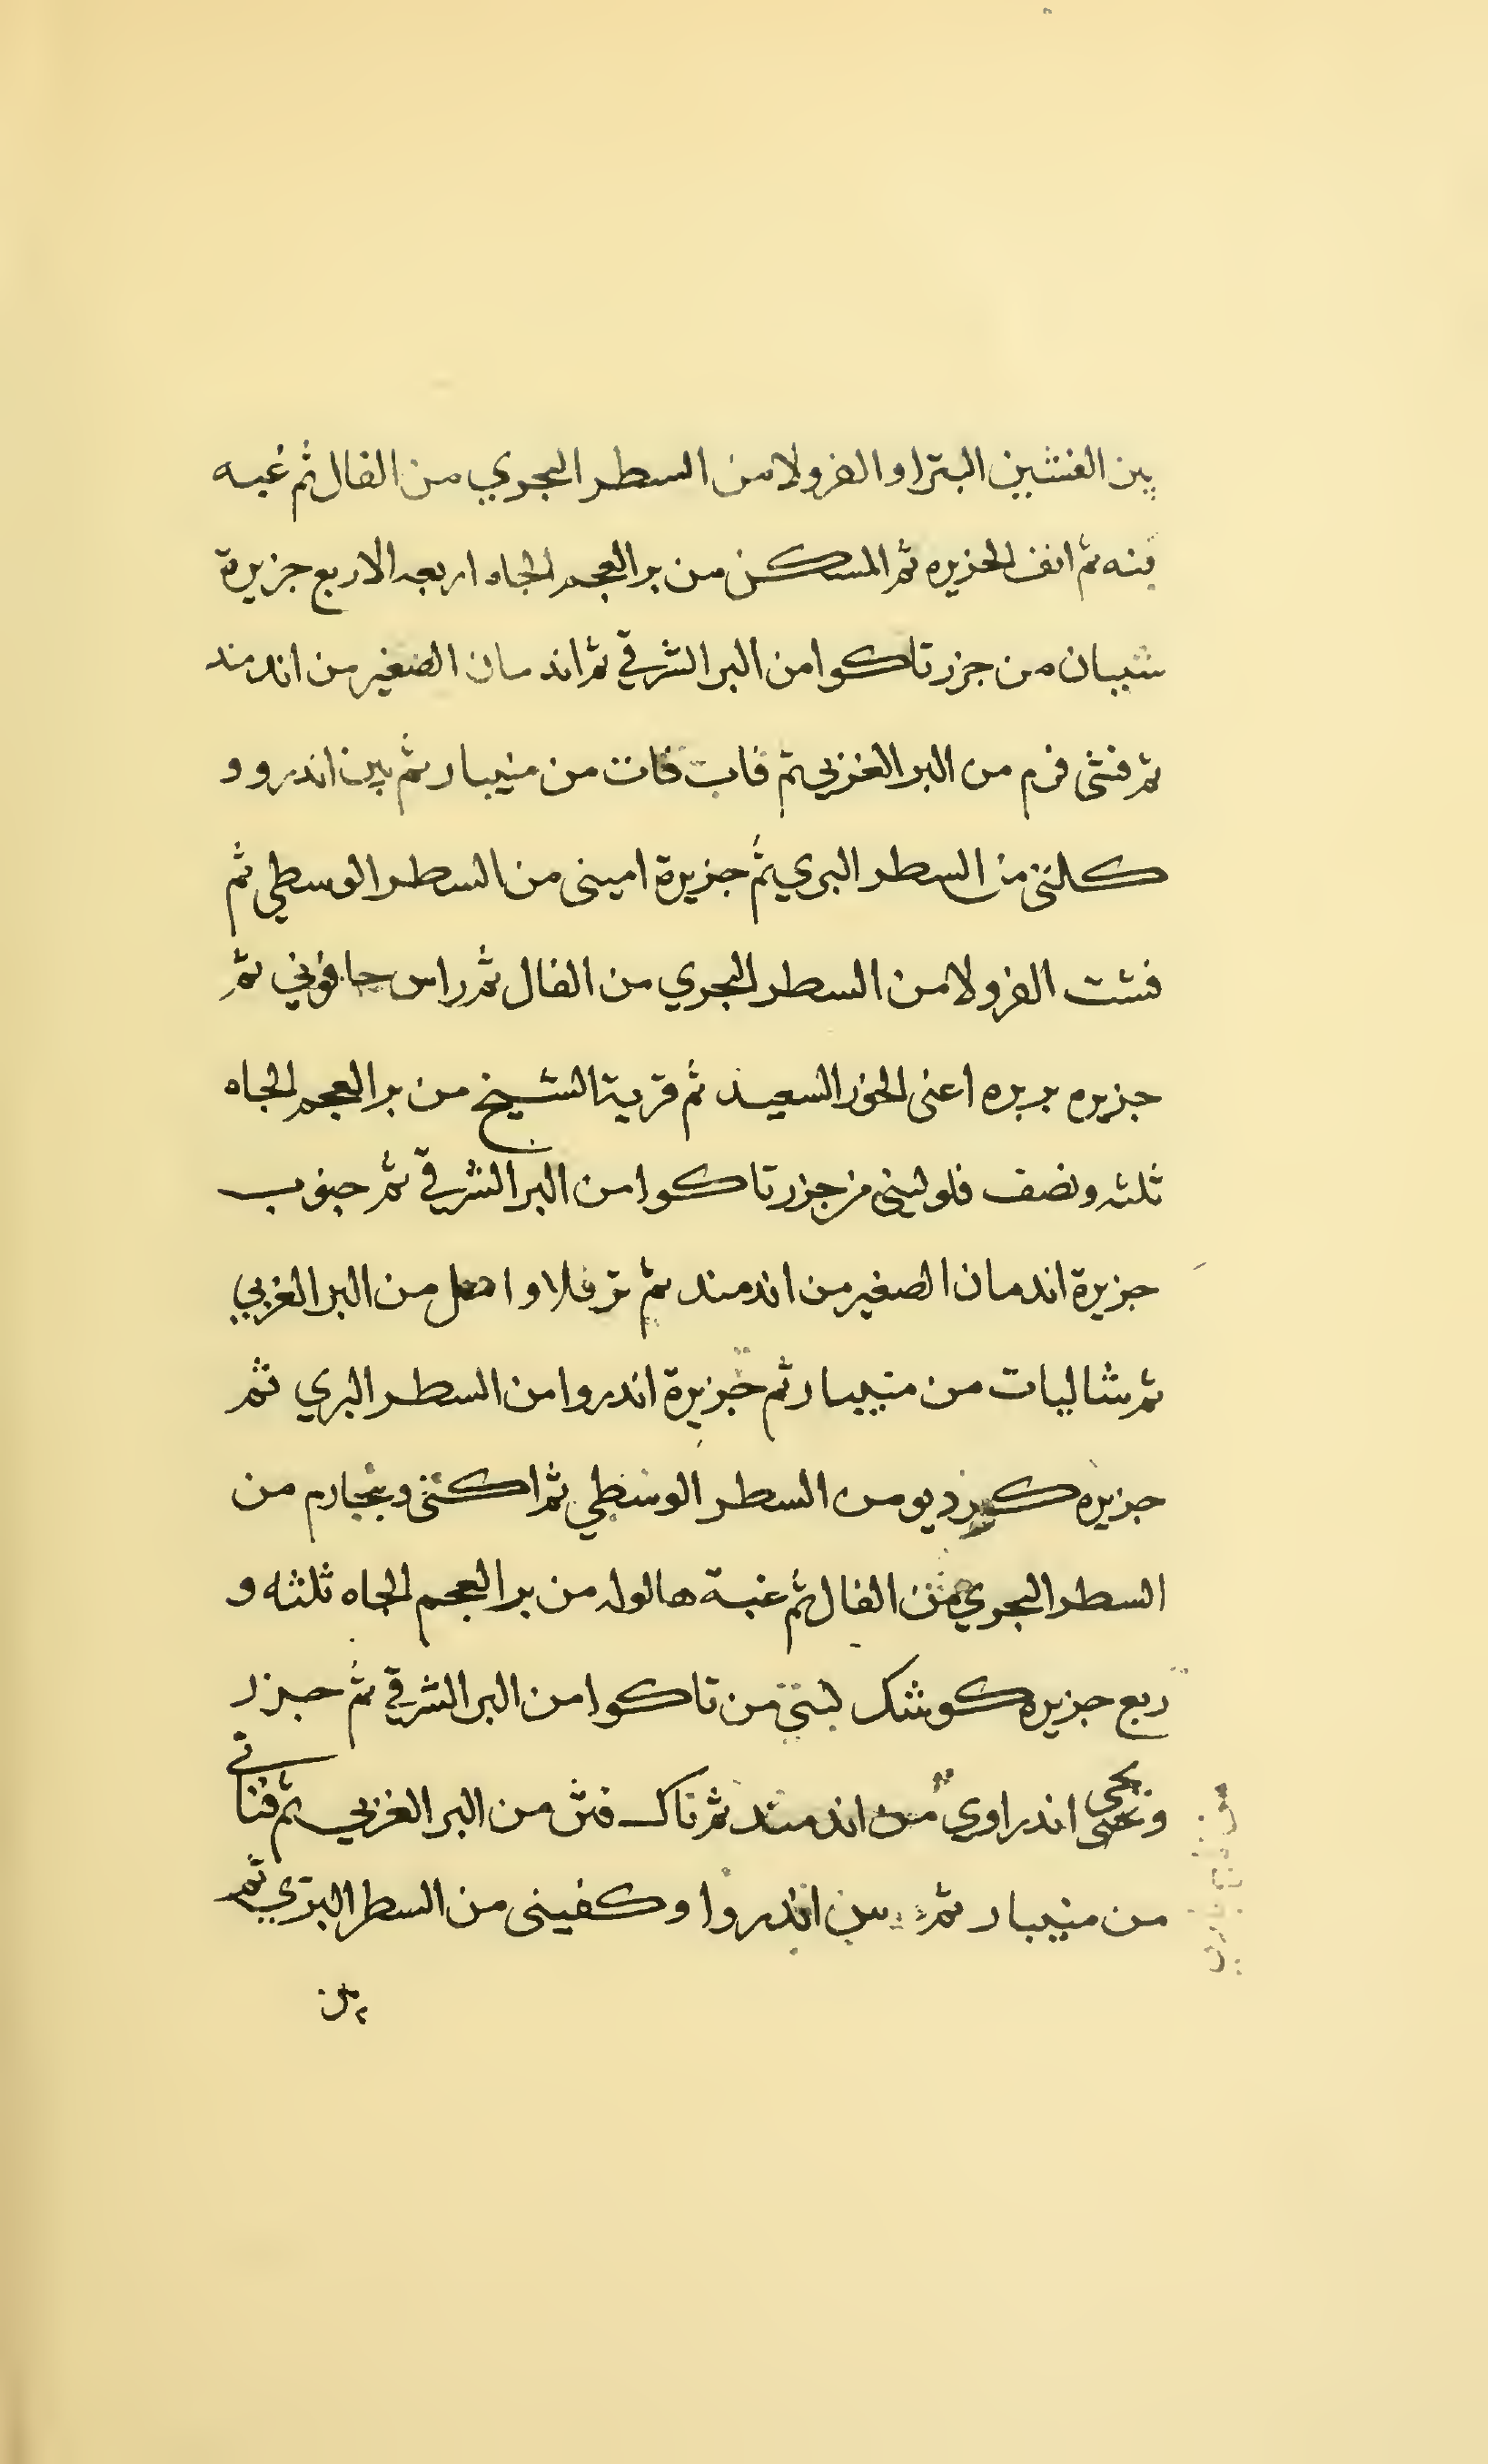 بين الفنثين البترا و الغزولا من السطر البحري من الفال ثم غبه
بنه ثم انف الخزيره ثم المسكن من بر العجم الجاه اربعه الاربع جزيرة
شبيان من جزر تاكوا من البر الشرقي ثم اندمان الصغير من اندمند
ثم فنثي فرم من البر الغربي ثم قاب قات من منيبار ثم بين اندرو و
كلتني من السطر البري ثم جزيرة اميني من السطر الوسطي ثم
فشت الغزولا من السطر البحري من الفال ثم راس حافوني ثم
جزيره بربره اعني الخور السعيد ثم قرية الشيخ من بر العجم الجاه
ثلثه ونصف فلو لبني من جزر تاكوا من البر الشرقي ثم جنوب
جزيرة اندمان الصغير من اندمند ثم ترفلا و من البر الغربي
ثم شاليات من منيبار ثم جزيرة اندروا من السطر البري ثم
جزيره كيرديو من السطر الوسطي ثم اكتي وبنجارم من
السطر البحري من الفال ثم غبة هالوله من بر العجم الجاه ثلثه و
ربع جزيره كوشك لبني من تاكوا من البر الشرقي ثم جزر
ونجي اندراوي من اندمند ثم ناك فش من البر الغربي ثم فناني
من منيبار ثم بين اندروا و كفيني من السطر البري ثم
بين